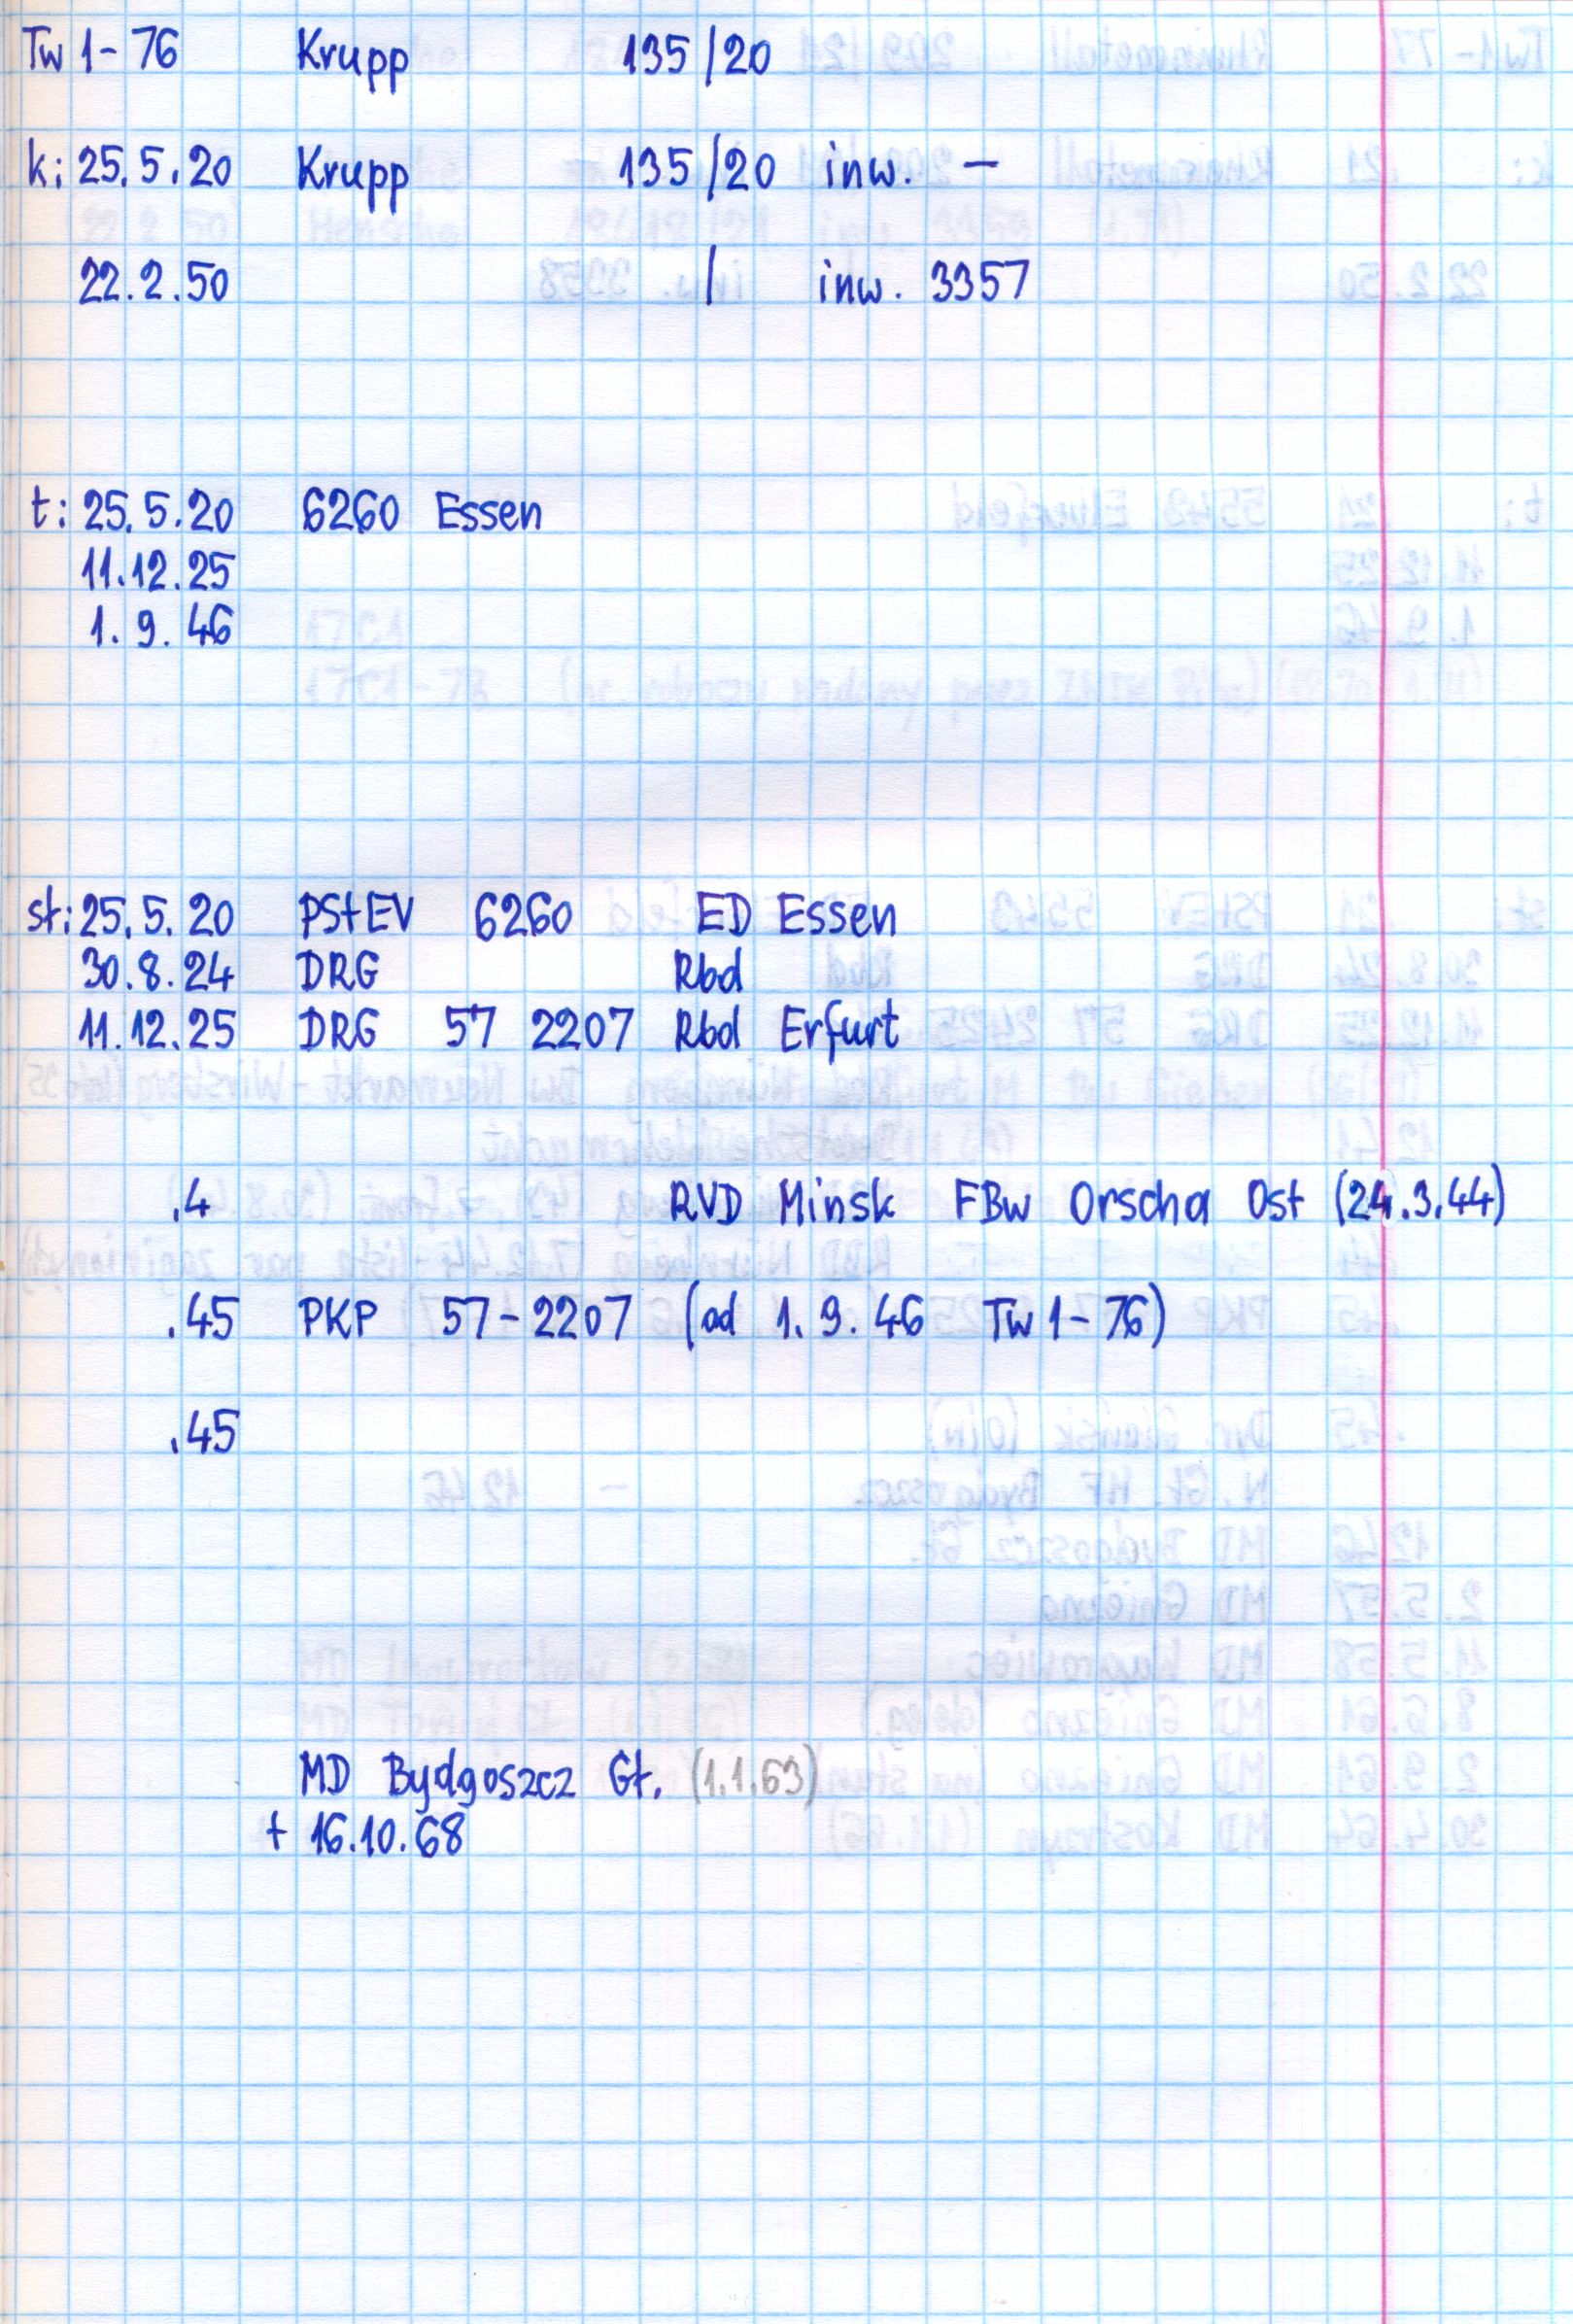 Tw 1-76 Krupp 135/20
k: 25.5.20 Krupp 135/20 inw. -
22.2.50 / inw. 3357
t: 25.5.20 6260 Essen
11.12.25
1.9.46
st: 25.5.20 PStEV 6260 ED Essen
30.8.24 DRG Rbd
11.12.25 DRG 57 2207 Rbd Erfurt
.4 RVD Minsk FBw Orscha Ost (24.3.44)
.45 PKP 57-2207 (od 1.9.46 Tw 1-76)
.45
MD Bydgoszcz Gł. (1.1.63)
+ 16.10.68